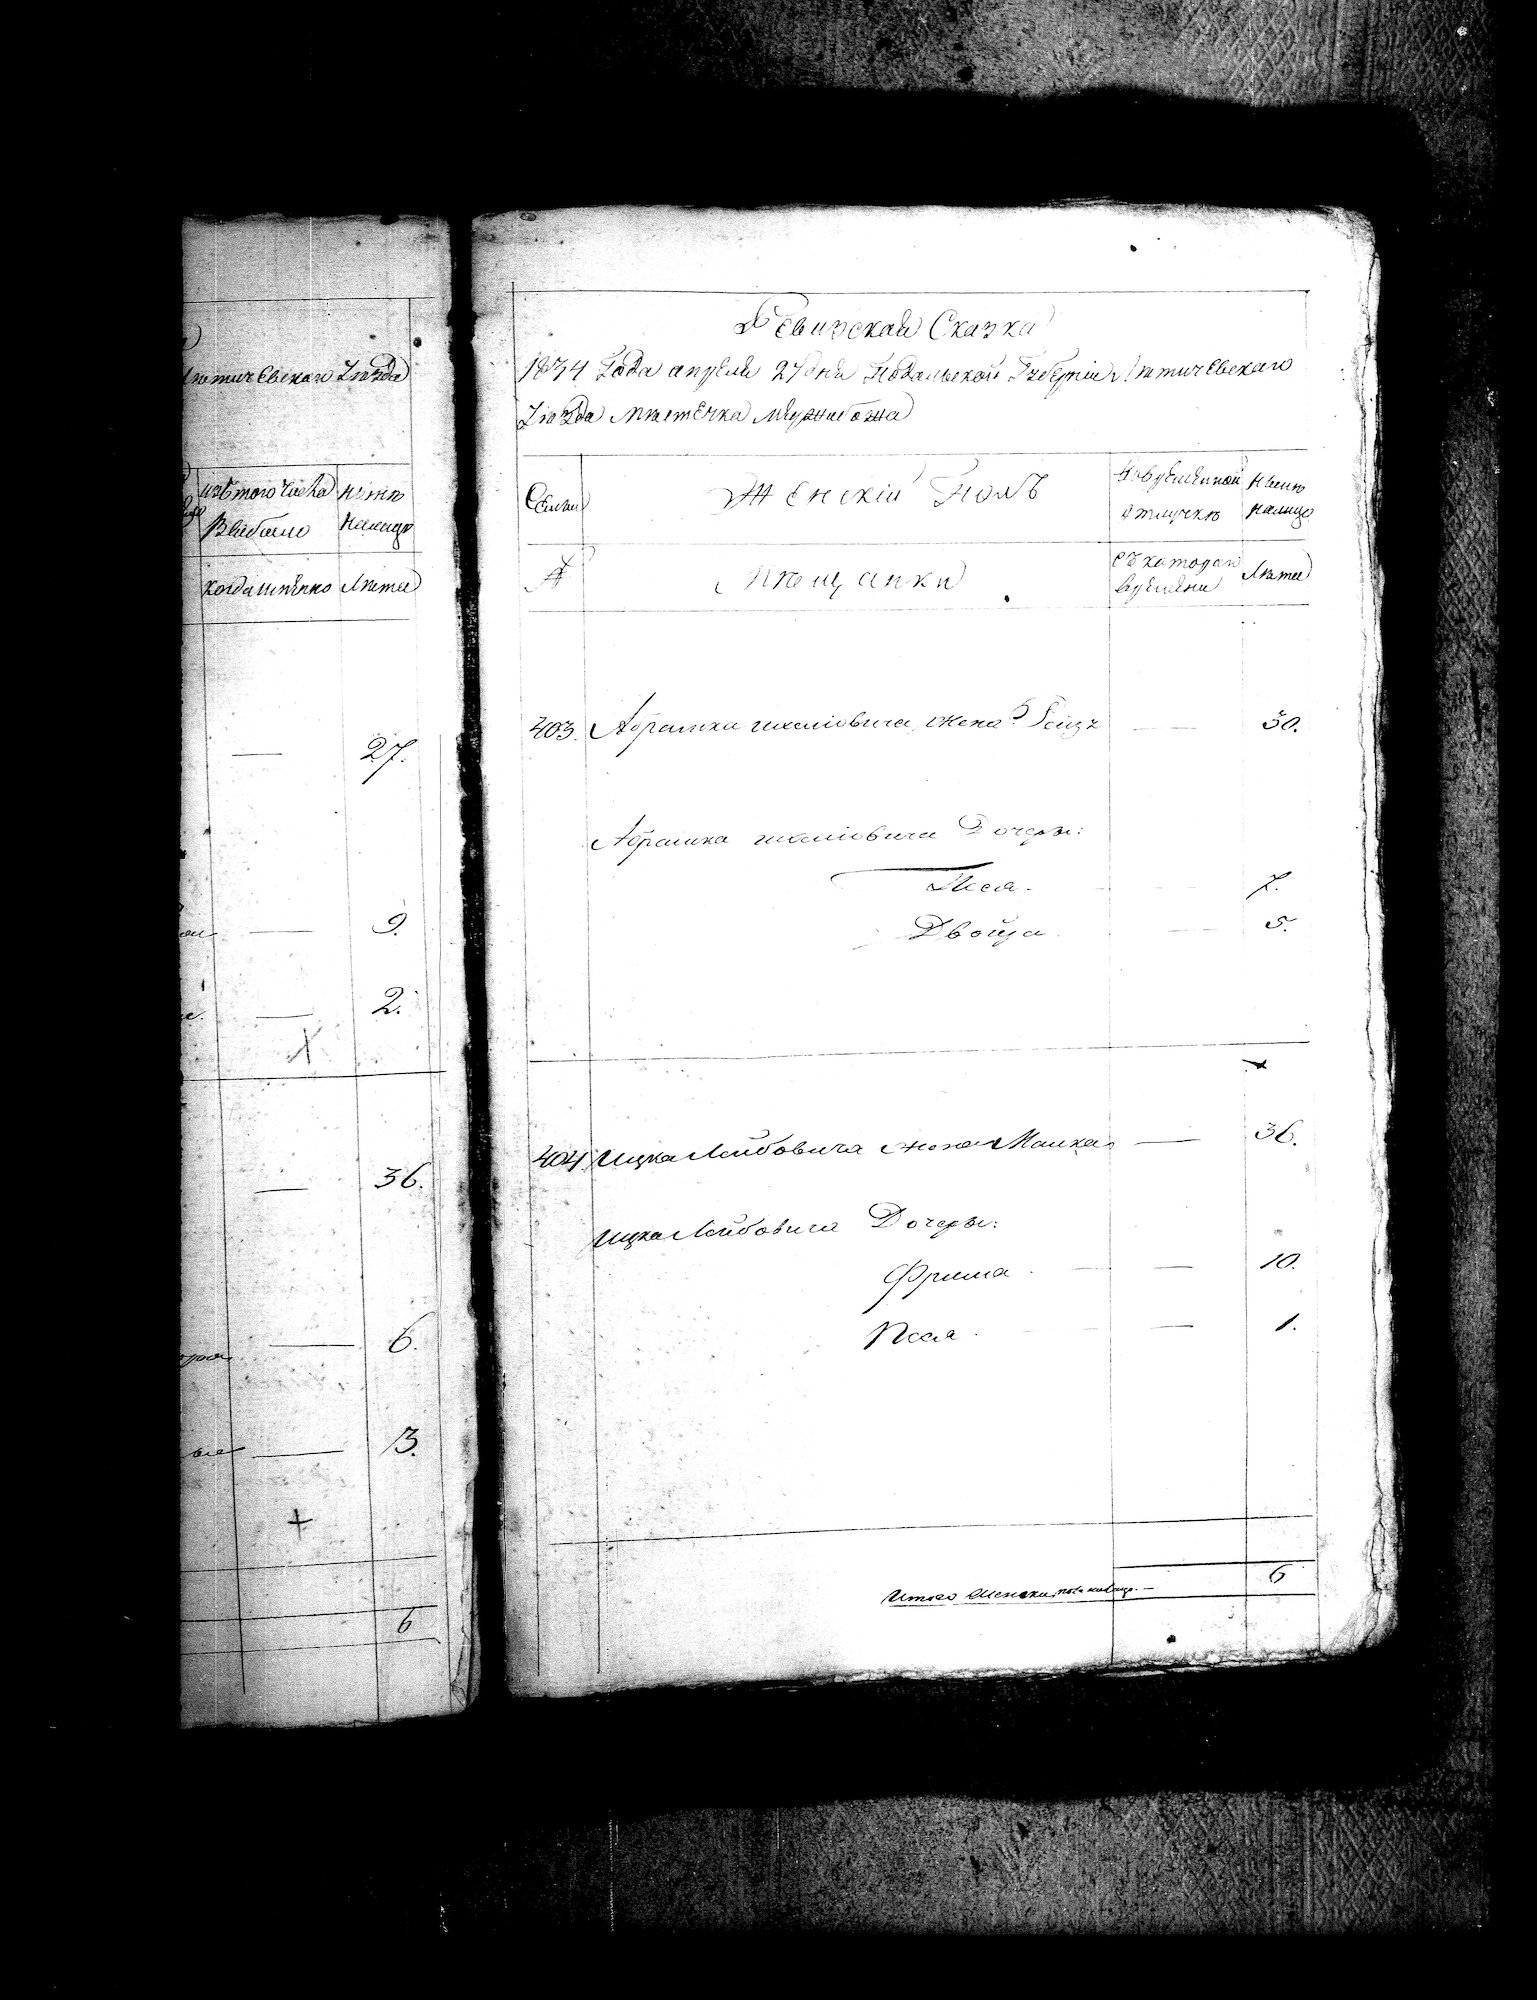 Лѣтичевскаго Уѣзда
изъ того числа
выбыло
нынѣ
налицо
когда имянно
Лѣта
27.
9.
2.
36.
6.
13.
6
Ревизская Сказка
1834 Года апреля 27 дня Подольской Губерніи Лѣтичевскаго
Уѣзда мѣстечка Меджибожа
Семьи
Женскій Полъ
Во временной
отлучкѣ
Ныне
налицо
№
Мѣщанки
съ котораго
времени
Лѣта
403. Абрамка жена 30.
Абрамка Дочеры:
Песя. 7.
Двойра 5.
404 Ицка Лейбовича жена Малка 36.
Ицка Лейбовича Дочеры:
Фрима 10.
Песя. 1.
Итого женска пола налицо. 6